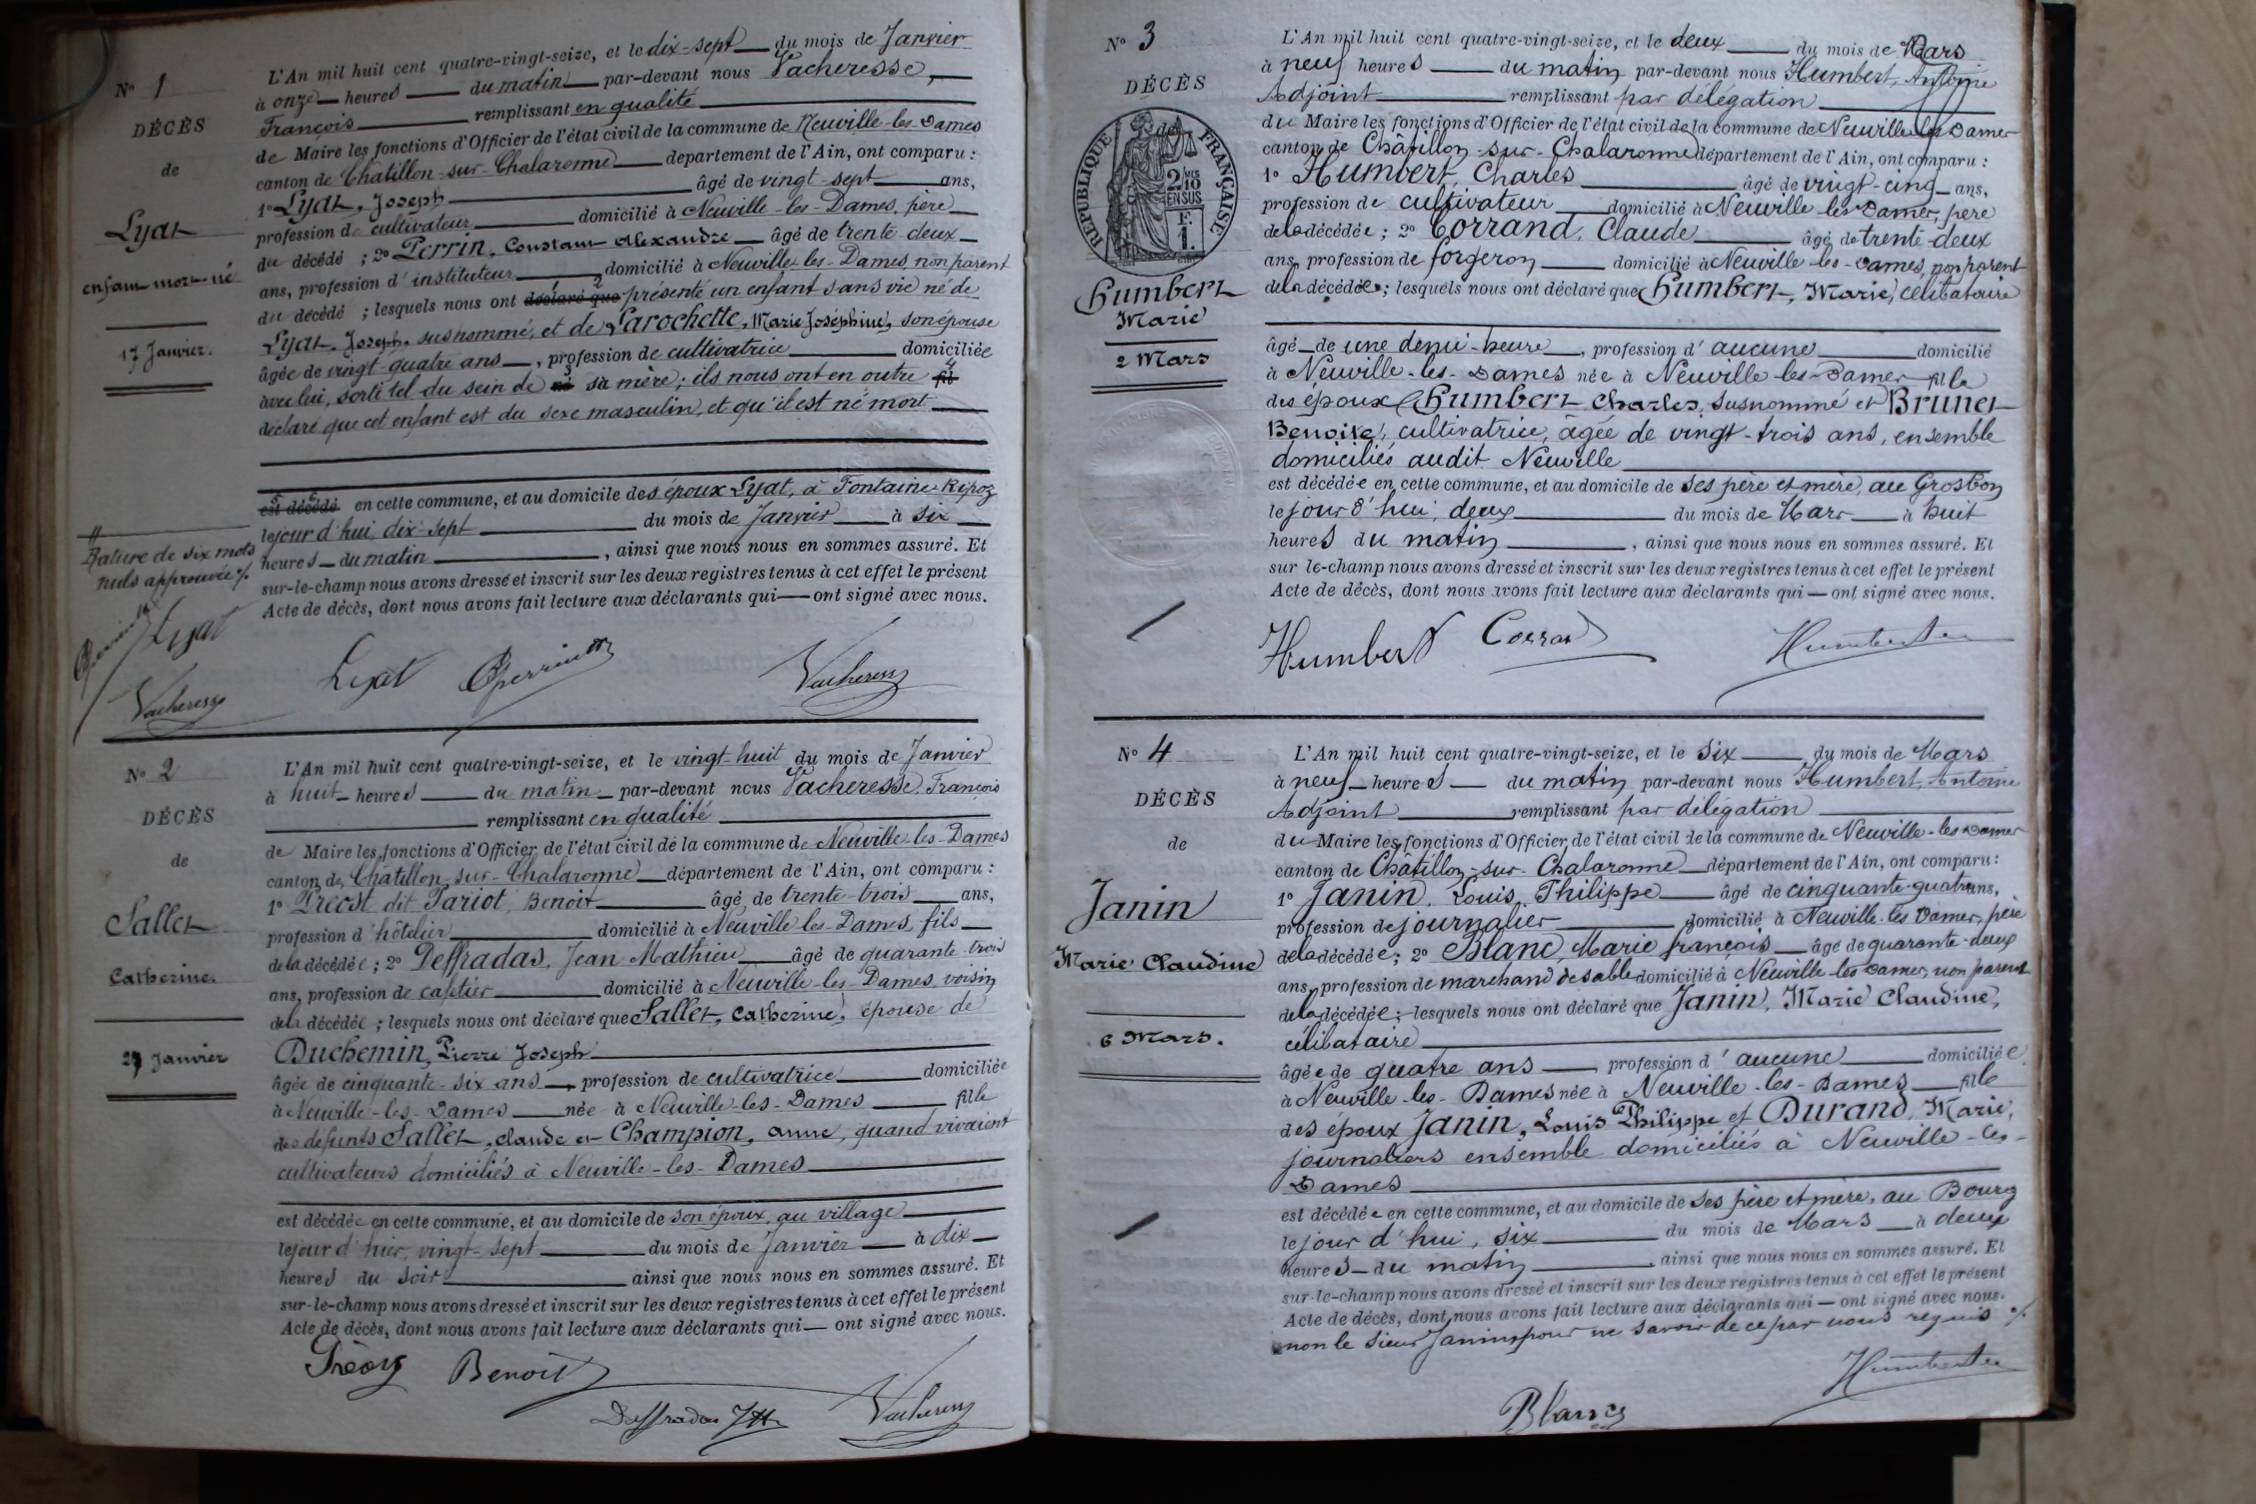 N° 1
DÉCÈS
de
Lyat
enfant mort-né
17 Janvier.
L'An mil huit cent quatre-vingt-seize, et le dix-sept du mois de Janvier
à onze heures du matin par-devant nous Vacheresse,
François remplissant en qualité
de Maire les fonctions d'Officier de l'état civil de la commune de Neuville-les-Dames
canton de Châtillon-sur-Chalaronne département de l'Ain, ont comparu :
1° Lyat, Joseph âgé de vingt-sept ans,
profession de cultivateur domicilié à Neuville-les-Dames, père
du décédé ; 2° Perrin, Constant Alexandre âgé de trente-deux
ans, profession d'instituteur domicilié à Neuville-les-Dames, non parent
du décédé ; lesquels nous ont déclaré que présenté un enfant sans vie né de
Lyat, Joseph, susnommé, et de Larochette, Marie Joséphine, son épouse
âgée de vingt-quatre ans, profession de cultivatrice domiciliée
avec lui, sorti tel du sein de né sa mère ; ils nous ont en outre fil
déclaré que cet enfant est du sexe masculin, et qu'il est né mort
est décédé en cette commune, et au domicile des époux Lyat, à Fontaine-Ripoz
le jour d'hui dix-sept du mois de Janvier à six
heures du matin, ainsi que nous nous en sommes assuré. Et
sur-le-champ nous avons dressé et inscrit sur les deux registres tenus à cet effet le présent
Acte de décès, dont nous avons fait lecture aux déclarants qui ont signé avec nous.
Rature de six mots
nuls approuvée
Perrin Lyat
Vacheresse
Lyat Perrin Vacheresse
N° 2
DÉCÈS
de
Sallet
Catherine.
27 Janvier
L'An mil huit cent quatre-vingt-seize, et le vingt-huit du mois de Janvier
à huit heures du matin par-devant nous Vacheresse, François
remplissant en qualité
de Maire les fonctions d'Officier de l'état civil de la commune de Neuville-les-Dames
canton de Châtillon-sur-Chalaronne département de l'Ain, ont comparu :
1° Préost dit Pariot, Benoit âgé de trente-trois ans,
profession d'hôtelier domicilié à Neuville-les-Dames, fils
de la décédée ; 2° Deffradas, Jean Mathieu âgé de quarante-trois
ans, profession de domicilié à Neuville-les-Dames, voisin
de la décédée ; lesquels nous ont déclaré que Sallet, Catherine, épouse de
Duchemin, Pierre Joseph
âgée de cinquante-six ans, profession de cultivatrice domiciliée
à Neuville-les-Dames née à Neuville-les-Dames fille
des défunts Sallet, Claude et Champion, Anne, quand vivaient
cultivateurs domiciliés à Neuville-les-Dames
est décédée en cette commune, et au domicile de son époux, au village
le jour d'hier, vingt-sept du mois de Janvier à dix
heures du soir ainsi que nous nous en sommes assuré. Et
sur-le-champ nous avons dressé et inscrit sur les deux registres tenus à cet effet le présent
Acte de décès, dont nous avons fait lecture aux déclarants qui ont signé avec nous.
Benoit
Deffradas Vacheresse
N° 3
DÉCÈS
de
RÉPUBLIQUE FRANÇAISE
2/10
EN SUS
F.
1.
Humbert
Marie
2 Mars
L'An mil huit cent quatre-vingt-seize, et le deux du mois de Mars
à neuf heures du matin par-devant nous Humbert, Antoine
Adjoint remplissant par délégation
du Maire les fonctions d'Officier de l'état civil de la commune de Neuville-les-Dames
canton de Châtillon-sur-Chalaronne département de l'Ain, ont comparu :
1° Humbert, Charles âgé de vingt-cinq ans,
profession de cultivateur domicilié à Neuville-les-Dames, père
de la décédée ; 2° Corrand, Claude âgé de trente-deux
ans, profession de forgeron domicilié à Neuville-les-Dames, non parent
de la décédée ; lesquels nous ont déclaré que Humbert, Marie, célibataire
âgé de une demi-heure, profession d'aucune domicilié
à Neuville-les-Dames née à Neuville-les-Dames fille
des époux Humbert, Charles, susnommé et Brunet
Benoite, cultivatrice, âgée de vingt-trois ans, ensemble
domiciliés audit Neuville
est décédée en cette commune, et au domicile de ses père et mère, au Grosbon
le jour d'hui, deux du mois de Mars à huit
heures du matin, ainsi que nous nous en sommes assuré. Et
sur-le-champ nous avons dressé et inscrit sur les deux registres tenus à cet effet le présent
Acte de décès, dont nous avons fait lecture aux déclarants qui ont signé avec nous.
Humbert Corrand Humbert
N° 4
DÉCÈS
de
Janin
Marie Claudine
6 Mars.
L'An mil huit cent quatre-vingt-seize, et le six du mois de Mars
à neuf heures du matin par-devant nous Humbert, Antoine
Adjoint remplissant par délégation
du Maire les fonctions d'Officier de l'état civil de la commune de Neuville-les-Dames
canton de Châtillon-sur-Chalaronne département de l'Ain, ont comparu :
1° Janin, Louis Philippe âgé de cinquante-quatre ans,
profession de journalier domicilié à Neuville-les-Dames, père
de la décédée ; 2° Blanc, Marie françois âgé de quarante-deux
ans, profession de marchand de sable domicilié à Neuville-les-Dames, non parent
de la décédée ; lesquels nous ont déclaré que Janin, Marie Claudine,
célibataire
âgée de quatre ans, profession d'aucune domiciliée
à Neuville-les-Dames née à Neuville-les-Dames fille
des époux Janin, Louis Philippe et Durand, Marie,
journaliers ensemble domiciliés à Neuville-les-
Dames
est décédée en cette commune, et au domicile de ses père et mère, au Bourg
le jour d'hui, six du mois de Mars à deux
heures du matin ainsi que nous nous en sommes assuré. Et
sur-le-champ nous avons dressé et inscrit sur les deux registres tenus à cet effet le présent
Acte de décès, dont nous avons fait lecture aux déclarants qui ont signé avec nous.
non le sieur Janin pour ne savoir de ce par nous requis
Humbert
Blanc